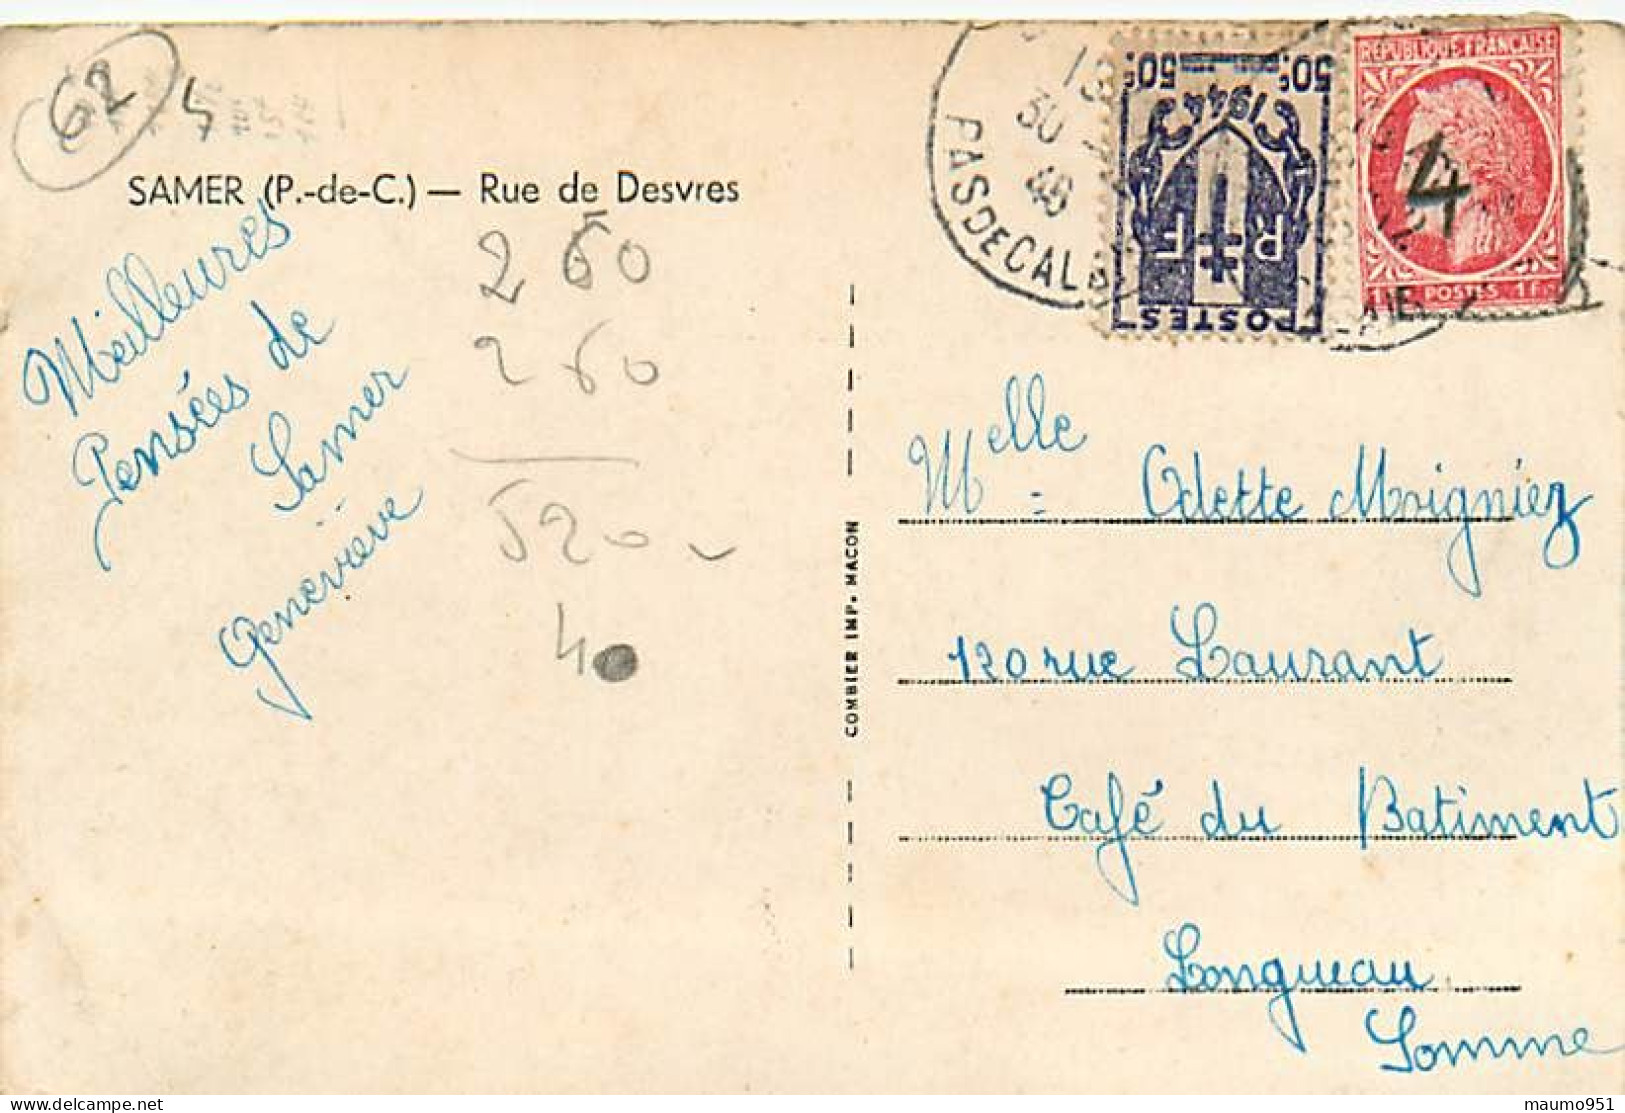 62
4
SAMER (P.-de-C.) — Rue de Desvres
Meilleures
Pensées de
Samer
Geneviève
2 60
2 60
520
40
COMBIER IMP. MACON
30
46
PAS DE CALAIS
50c 50c
1944
R F
POSTES
REPUBLIQUE FRANÇAISE
4
1Fr POSTES 1Fr
Melle Odette Moigniez
120 rue Laurant
Café du Batiment
Longueau
Somme
maumo951